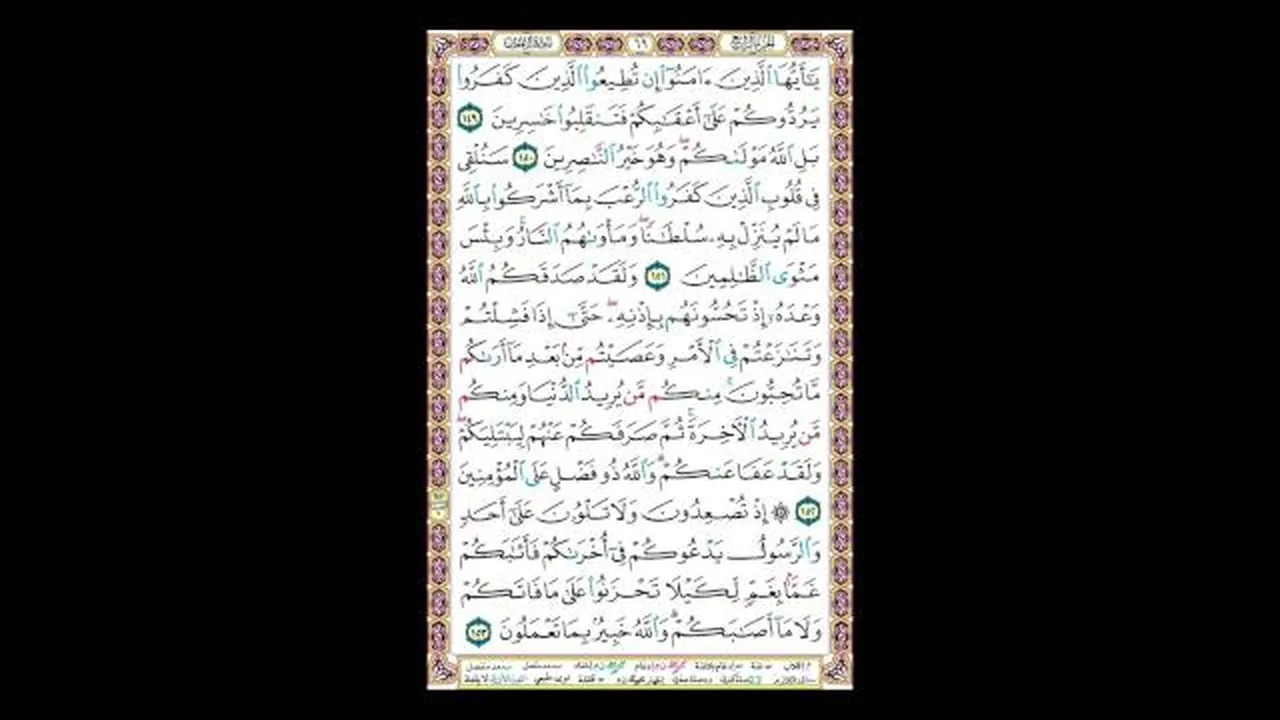 الجزء الرابع ٦٩ سورة آل عمران
يَـٰٓأَيُّهَا ٱلَّذِينَ ءَامَنُوٓا۟ إِن تُطِيعُوا۟ ٱلَّذِينَ كَفَرُوا۟
يَرُدُّوكُمْ عَلَىٰٓ أَعْقَـٰبِكُمْ فَتَنقَلِبُوا۟ خَـٰسِرِينَ ١٤٩
بَلِ ٱللَّهُ مَوْلَىٰكُمْ ۖ وَهُوَ خَيْرُ ٱلنَّـٰصِرِينَ ١٥٠ سَنُلْقِى
فِى قُلُوبِ ٱلَّذِينَ كَفَرُوا۟ ٱلرُّعْبَ بِمَآ أَشْرَكُوا۟ بِٱللَّهِ
مَا لَمْ يُنَزِّلْ بِهِۦ سُلْطَـٰنًا ۖ وَمَأْوَىٰهُمُ ٱلنَّارُ ۚ وَبِئْسَ
مَثْوَى ٱلظَّـٰلِمِينَ ١٥١ وَلَقَدْ صَدَقَكُمُ ٱللَّهُ
وَعْدَهُۥٓ إِذْ تَحُسُّونَهُم بِإِذْنِهِۦ ۖ حَتَّىٰٓ إِذَا فَشِلْتُمْ
وَتَنَـٰزَعْتُمْ فِى ٱلْأَمْرِ وَعَصَيْتُم مِّنۢ بَعْدِ مَآ أَرَىٰكُم
مَّا تُحِبُّونَ ۚ مِنكُم مَّن يُرِيدُ ٱلدُّنْيَا وَمِنكُم
مَّن يُرِيدُ ٱلْـَٔاخِرَةَ ۚ ثُمَّ صَرَفَكُمْ عَنْهُمْ لِيَبْتَلِيَكُمْ ۖ
وَلَقَدْ عَفَا عَنكُمْ ۗ وَٱللَّهُ ذُو فَضْلٍ عَلَى ٱلْمُؤْمِنِينَ
١٥٢ ۞ إِذْ تُصْعِدُونَ وَلَا تَلْوُۥنَ عَلَىٰٓ أَحَدٍ
وَٱلرَّسُولُ يَدْعُوكُمْ فِىٓ أُخْرَىٰكُمْ فَأَثَـٰبَكُمْ
غَمًّۢا بِغَمٍّ لِّكَيْلَا تَحْزَنُوا۟ عَلَىٰ مَا فَاتَكُمْ
وَلَا مَآ أَصَـٰبَكُمْ ۗ وَٱللَّهُ خَبِيرٌۢ بِمَا تَعْمَلُونَ ١٥٣